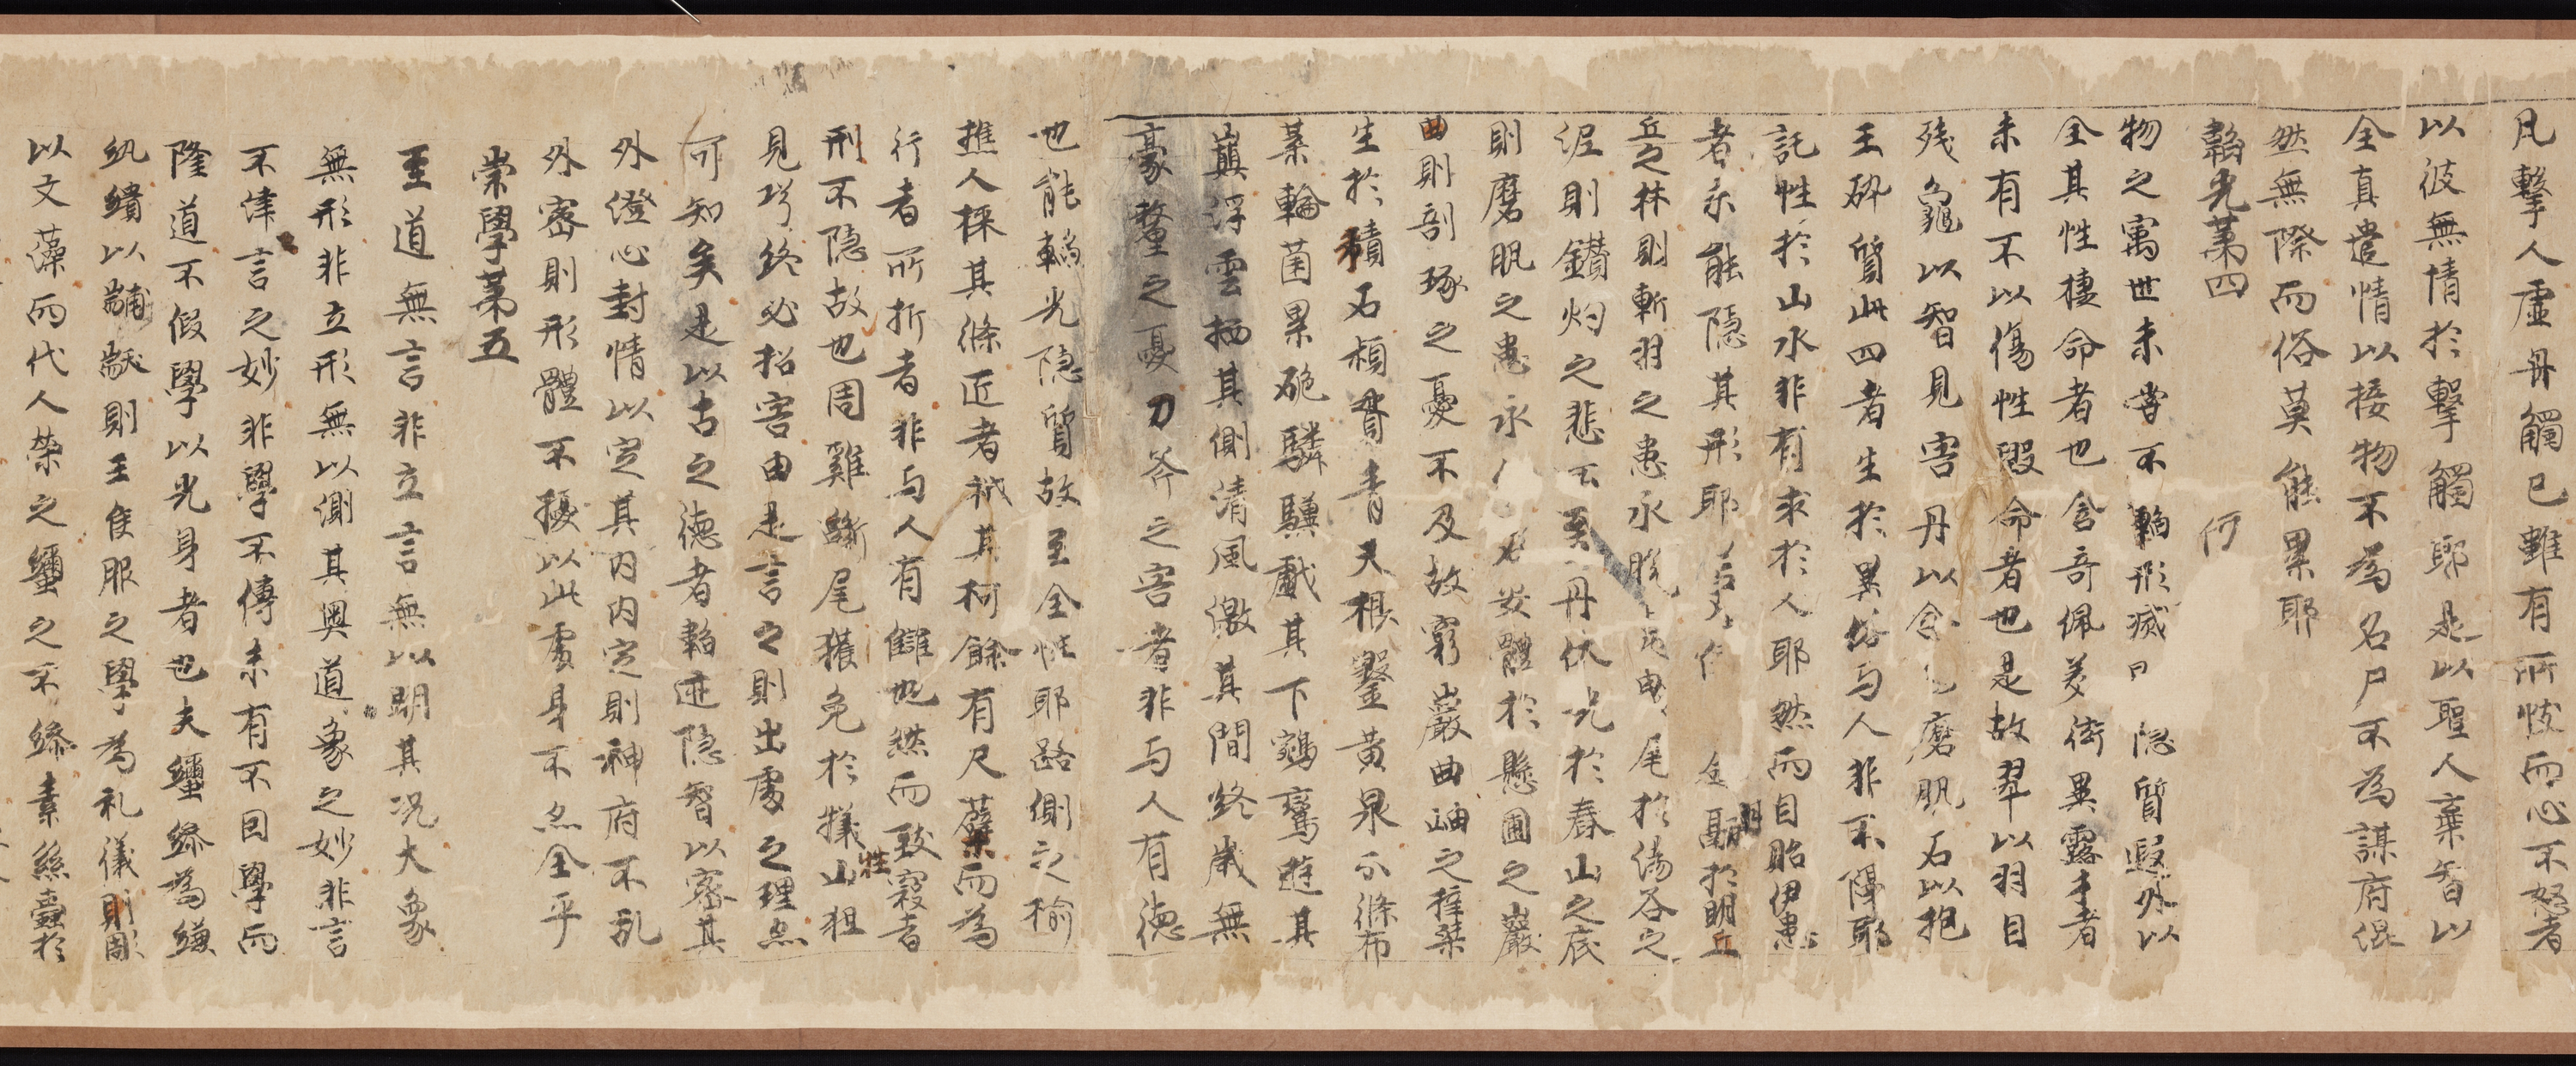 凡擊人虛舟觸己雖有所忮而心不怒者
以彼無情於擊觸耶是以聖人棄智以
全真遣情以接物不為名尸不為謀府混
然無際而俗莫能累耶
韜光苐四
何
物之寓世未嘗不韜形滅隠質遐外以
全其性棲命者也含奇佩美衒異露才者
未有不以傷性毀命者也是故翠以羽自
残龜以智見害丹以含磨肌石以抱
玉碎質此四者生於異俗与人非不隔耶
託性於山水非有求於人耶然而自貽伊患
者未能隠其形耶於明丘
丘之林則斬羽之患永脫尾於傷谷之
泥則鑽灼之悲不至丹伏光於舂山之底
則磨肌之患永石安體於懸圃之巖
曲則剖琢之憂不及故窮巖曲岫之梓桒
生於積石穎貫青天根鑿黃泉分條布
葉輪菌磊硊騏驥戲其下鵷鸞遊其
巔浮雲栖其側清風激其間終歲無
豪釐之憂刀斧之害者非与人有徳
也能韜光隠質故至全性耶路側之榆
樵人採其條匠者伐其柯餘有尺蘖而為
行者所折者非与人有讎也然而致寇者
形不隠故也周雞斷尾獲免於犧牲山狙
見巧終必招害由是言之則出處之理亦
可知矣是以古之徳者韜迹隠智以密其
外澄心封情以定其内内定則神府不乱
外密則形體不擾以此處身不亦全乎
崇學苐五
至道無言非立言無以明其況大象
無形非立形無以測其奧道象之妙非言
不津言之妙非學不傳未有不因學而
隆道不假學以光身者也夫蠒繰為縑
紈繢以黼黻則王侯服之學為礼儀則彫
以文藻而代人榮之蠒之不繰素絲蠹於